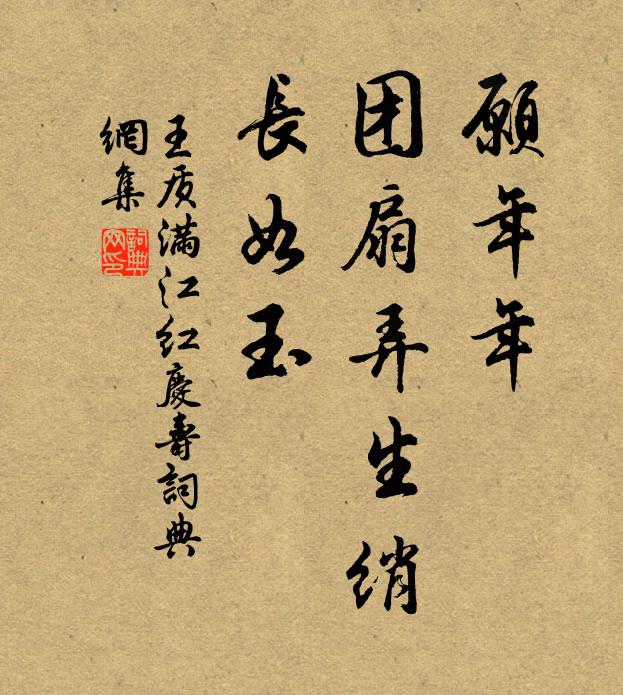 願年年
团扇弄生绡
長如玉
王质满江红慶壽詞典
網集
詞典
网印